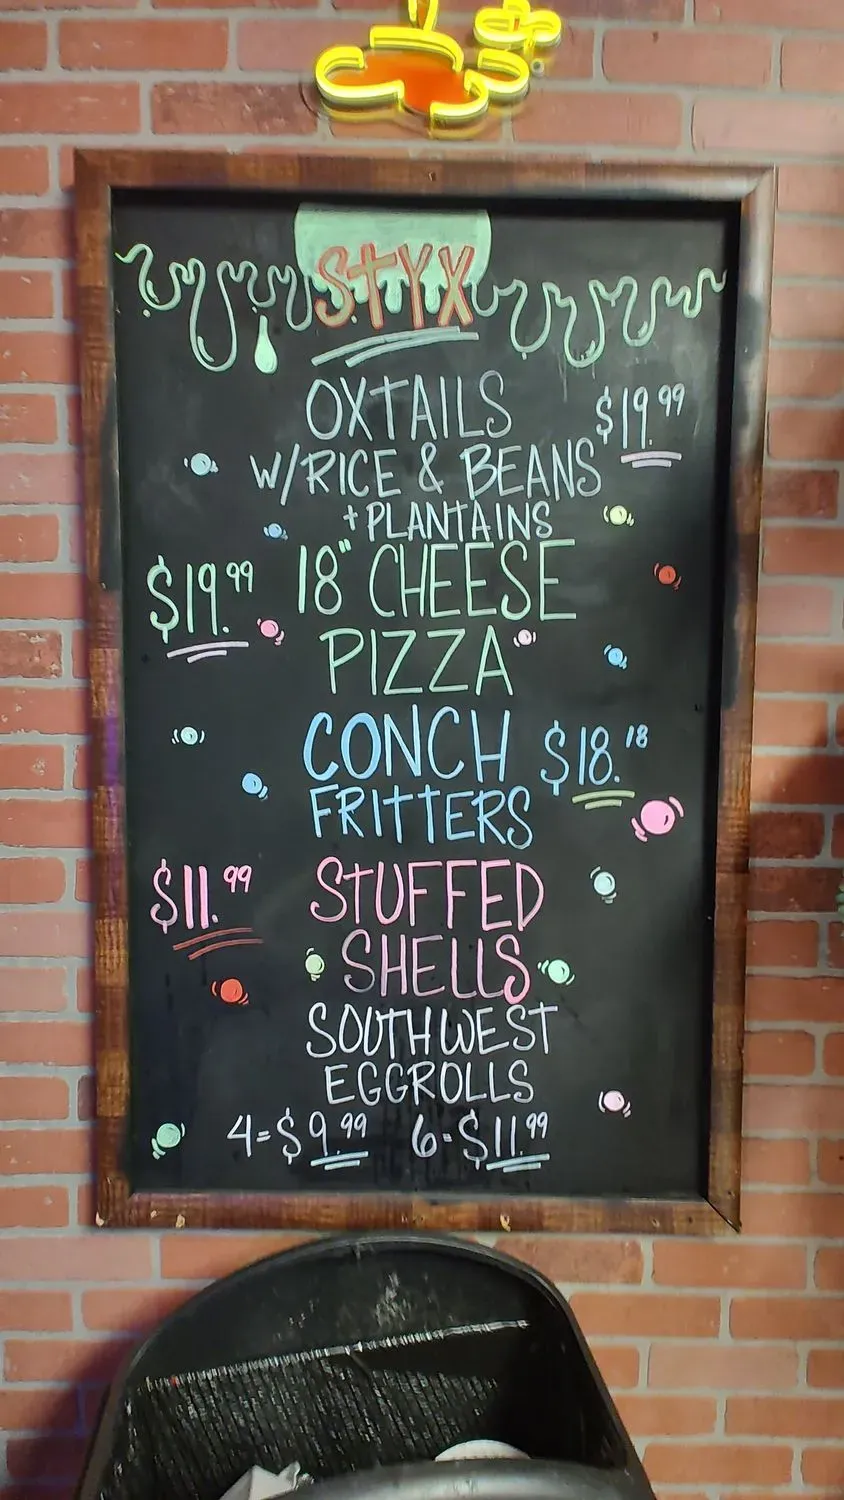 STYX
OXTAILS $19.99
W/RICE & BEANS
+ PLANTAINS
$19.99 18" CHEESE
PIZZA
CONCH $18.18
FRITTERS
$11.99 STUFFED
SHELLS
SOUTHWEST
EGGROLLS
4=$9.99 6=$11.99